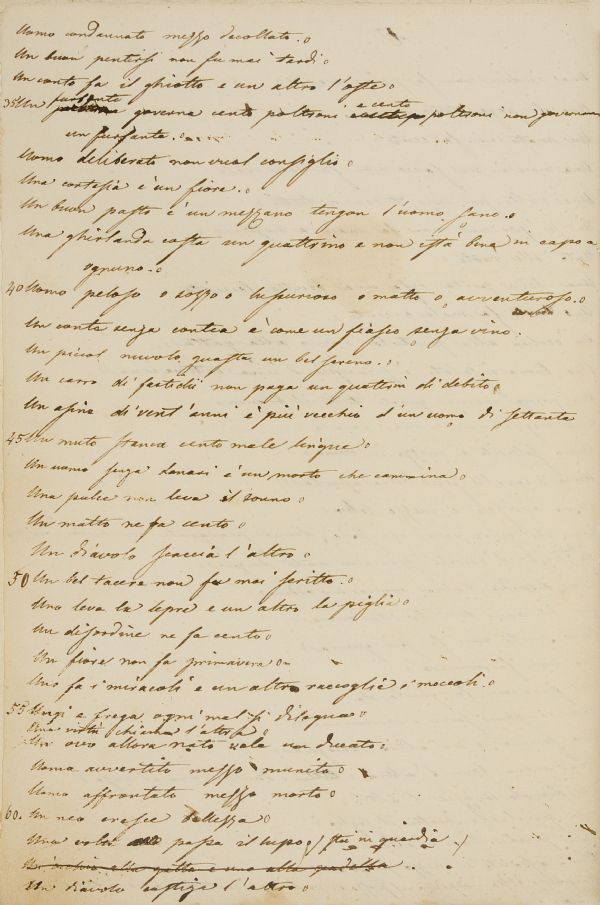 Uomo condannato mezzo decollato.
Un buon pentirsi non fu mai tardi
Un conto fa il ghiotto e un altro l'oste
furfante e cento
35 Un governa cento poltroni poltroni non governano
un furfante.
Uomo deliberato non vuol consiglio
Una cortesia è un fiore.
Un buon pasto è un mezzano tengon l'uomo sano.
Una ghirlanda costa un quattrino e non istà bene in capo a
ognuno.
40 Uomo peloso o sozzo o lussurioso o matto o avventuroso.
Un conte senza contea è come un fiasco senza vino.
Un picciol nuvolo guasta un bel sereno.
Un carro di fastidii non paga un quattrin di debito
Un asino di vent'anni è più vecchio d'un uomo di settanta
45 Un muto stanca cento male lingue
Un uomo senza danari è un morto che cammina
Una pulce non leva il sonno
Un matto ne fa cento
Un diavolo scaccia l'altro
50 Un bel tacere non fu mai scritto.
Uno leva la lepre e un altro la piglia
Un disordine ne fa cento
Un fiore non fa primavera
Uno fa i miracoli e un altro raccoglie i moccoli.
55 Ungi e frega ogni mal si dilegua
Una virtù chiama l'altra
Un ovo allora nato vale un ducato
Uomo avvertito mezzo munito
Uomo affrontato mezzo morto
60. Un neo cresce bellezza
Una volta passa il lupo. / stai in guardia /
alla gatta e uno alla padella
Un diavolo castiga l'altro